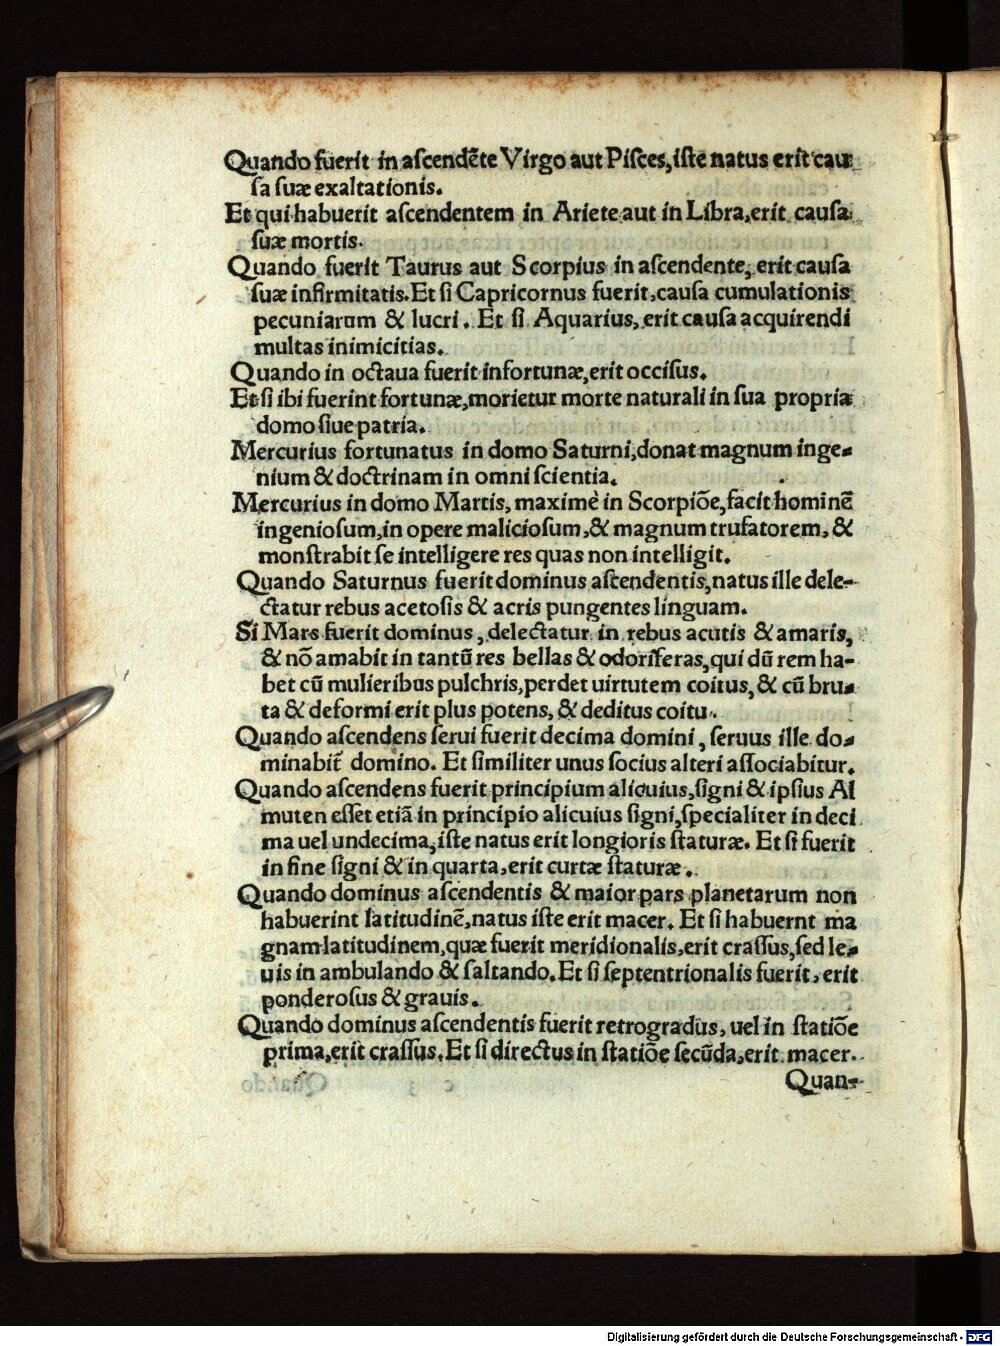 Quando fuerit in ascendẽte Virgo aut Pisces, iste natus erit cau
sa suæ exaltationis.
Et qui habuerit ascendentem in Ariete aut in Libra, erit causa
suæ mortis.
Quando fuerit Taurus aut Scorpius in ascendente, erit causa
suæ infirmitatis. Et si Capricornus fuerit, causa cumulationis
pecuniarum & lucri. Et si Aquarius, erit causa acquirendi
multas inimicitias.
Quando in octaua fuerit infortunæ, erit occisus.
Et si ibi fuerint fortunæ, morietur morte naturali in sua propria
domo siue patria.
Mercurius fortunatus in domo Saturni, donat magnum inge-
nium & doctrinam in omni scientia.
Mercurius in domo Martis, maximè in Scorpiõe, facit hominẽ
ingeniosum, in opere maliciosum, & magnum trufatorem, &
monstrabit se intelligere res quas non intelligit.
Quando Saturnus fuerit dominus ascendentis, natus ille dele-
ctatur rebus acetosis & acris pungentes linguam.
Si Mars fuerit dominus, delectatur in rebus acutis & amaris,
& nõ amabit in tantũ res bellas & odoriferas, qui dũ rem ha-
bet cũ mulieribus pulchris, perdet uirtutem coitus, & cũ bru-
ta & deformi erit plus potens, & deditus coitu.
Quando ascendens serui fuerit decima domini, seruus ille do-
minabit̃ domino. Et similiter unus socius alteri associabitur.
Quando ascendens fuerit principium alicuius, signi & ipsius Al
muten esset etiã in principio alicuius signi, specialiter in deci
ma uel undecima, iste natus erit longioris staturæ. Et si fuerit
in fine signi & in quarta, erit curtæ staturæ.
Quando dominus ascendentis & maior pars planetarum non
habuerint latitudinẽ, natus iste erit macer. Et si habuernt ma
gnam latitudinem, quæ fuerit meridionalis, erit crassus, sed le-
uis in ambulando & saltando. Et si septentrionalis fuerit, erit
ponderosus & grauis.
Quando dominus ascendentis fuerit retrogradus, uel in statiõe
prima, erit crassus. Et si directus in statiõe secũda, erit macer.
Quan-
Digitalisierung gefördert durch die Deutsche Forschungsgemeinschaft - DFG